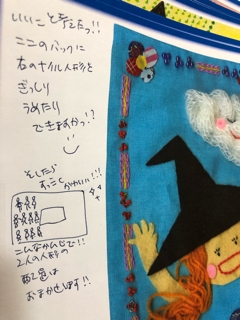 いいこと考えたっ!!
ここのバックに
右のナル人形を
ぎっしり
うめたり
できますかっ!?
そしたら
すっごく
かわいい!!!
こんなかんじで!!
2人の人形の
配置は
おまかせします!!